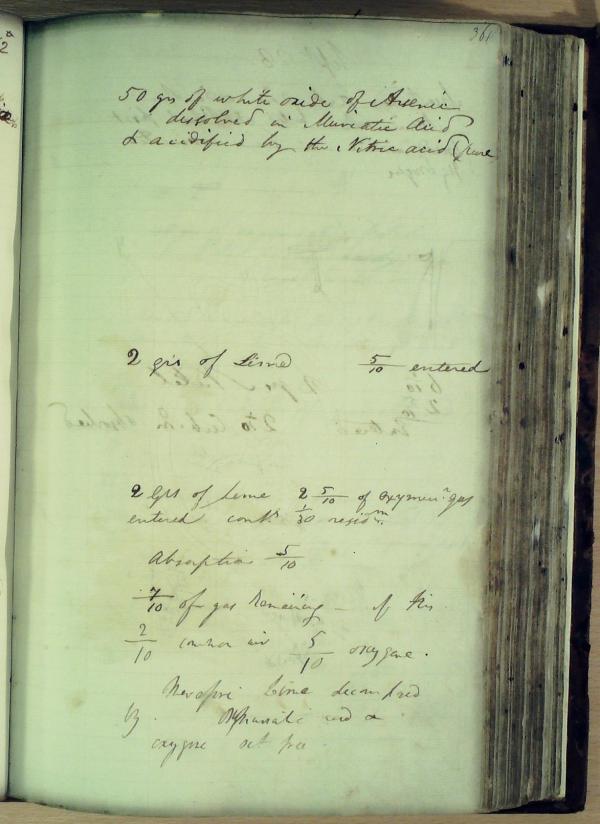 361
50 grs of white oxide of Arsenic
dissolved in Muriatic Acid
& acidified by the Nitric acid (pure
2 grs of Lime 5/10 entered
2 Grs of Lime 2 5/10 of oxymur.c gas
entered cont.g 1/30 resid.m
Absorption 5/10
7/10 of gas Remaining – of this
2/10 common air 5/10 oxygene.
Therefore Lime decomposed
by Oxymuriatic acid &
oxygene set free